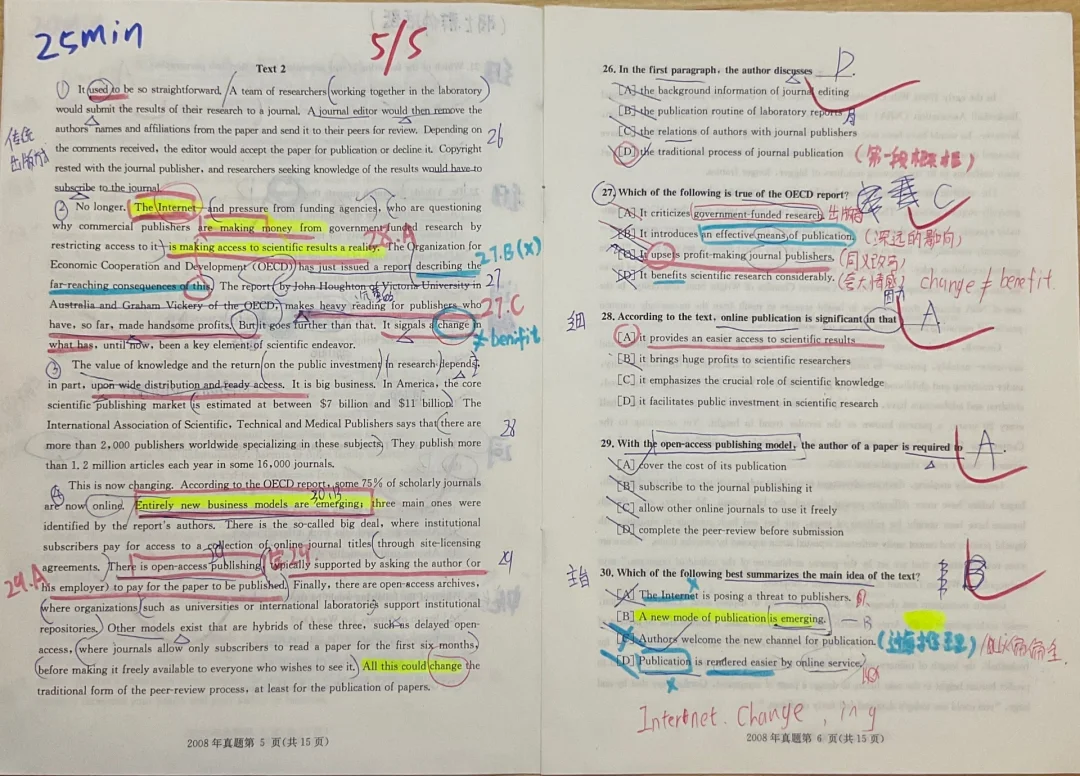 25min
5/5
Text 2
① It used to be so straightforward. A team of researchers working together in the laboratory
would submit the results of their research to a journal. A journal editor would then remove the
authors' names and affiliations from the paper and send it to their peers for review. Depending on
the comments received, the editor would accept the paper for publication or decline it. Copyright
rested with the journal publisher, and researchers seeking knowledge of the results would have to
subscribe to the journal.
26
传统
出版方式
② No longer. The Internet—and pressure from funding agencies, who are questioning
why commercial publishers are making money from government-funded research by
restricting access to it—is making access to scientific results a reality. The Organization for
Economic Cooperation and Development (OECD) has just issued a report describing the
far-reaching consequences of this. The report, by John Houghton of Victoria University in
Australia and Graham Vickery of the OECD, makes heavy reading for publishers who
have, so far, made handsome profits. But it goes further than that. It signals a change in
what has, until now, been a key element of scientific endeavor.
28.A
27.B(x)
27
27.C
≠benifit
③ The value of knowledge and the return on the public investment in research depends,
in part, upon wide distribution and ready access. It is big business. In America, the core
scientific publishing market is estimated at between $7 billion and $11 billion. The
International Association of Scientific, Technical and Medical Publishers says that there are
more than 2,000 publishers worldwide specializing in these subjects. They publish more
than 1.2 million articles each year in some 16,000 journals.
28
④ This is now changing. According to the OECD report, some 75% of scholarly journals
are now online. Entirely new business models are emerging; three main ones were
identified by the report's authors. There is the so-called big deal, where institutional
subscribers pay for access to a collection of online journal titles through site-licensing
agreements. There is open-access publishing, typically supported by asking the author (or
his employer) to pay for the paper to be published. Finally, there are open-access archives,
where organizations such as universities or international laboratories support institutional
repositories. Other models exist that are hybrids of these three, such as delayed open-
access, where journals allow only subscribers to read a paper for the first six months,
before making it freely available to everyone who wishes to see it. All this could change the
traditional form of the peer-review process, at least for the publication of papers.
30.B
29
29.A
2008 年真题第 5 页(共 15 页)
26. In the first paragraph, the author discusses D.
[A] the background information of journal editing
[B] the publication routine of laboratory reports
[C] the relations of authors with journal publishers
[D] the traditional process of journal publication (第一段概括)
27. Which of the following is true of the OECD report? C
[A] It criticizes government-funded research.
[B] It introduces an effective means of publication. (深远的影响)
[C] It upsets profit-making journal publishers. (同义改写)
[D] It benefits scientific research considerably. change ≠ benefit.
细
28. According to the text, online publication is significant in that A
[A] it provides an easier access to scientific results
[B] it brings huge profits to scientific researchers
[C] it emphasizes the crucial role of scientific knowledge
[D] it facilitates public investment in scientific research
29. With the open-access publishing model, the author of a paper is required to A.
[A] cover the cost of its publication
[B] subscribe to the journal publishing it
[C] allow other online journals to use it freely
[D] complete the peer-review before submission
主旨
30. Which of the following best summarizes the main idea of the text? B
[A] The Internet is posing a threat to publishers.
[B] A new mode of publication is emerging. — B
[C] Authors welcome the new channel for publication. (过度推理)
[D] Publication is rendered easier by online service.
Internet. Change, ing
2008 年真题第 6 页(共 15 页)